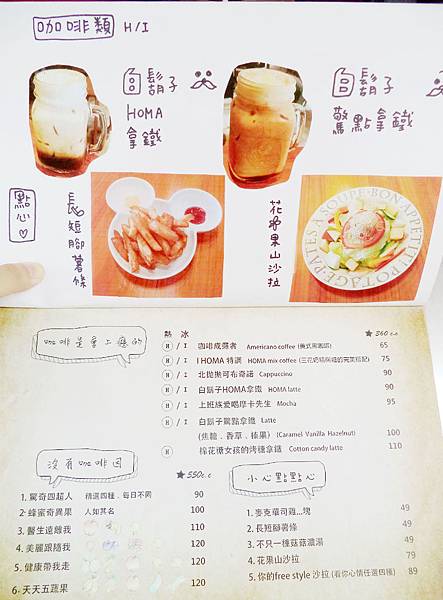 咖啡類 H/I
白鬍子
HOMA
拿鐵
白鬍子
驚點拿鐵
點心♡
長短腳薯條
花果山沙拉
PATES A SOUPE · BON · APPETIT · POTAGE
咖啡是會上癮的
熱 冰
★ 360 c.c
H / I 咖啡成癮者 Americano coffee (美式黑咖啡) 65
H / I I HOMA 特調 HOMA mix coffee 75
H / I 北拋拋可布奇諾 Cappuccino 90
H / I 白鬍子HOMA拿鐵 HOMA latte 90
H / I 上班族愛喝摩卡先生 Mocha 95
H / I 白鬍子驚點拿鐵 Latte
(焦糖、香草、榛果) (Caramel Vanilla Hazelnut) 100
H 棉花糖女孩的烤糖拿鐵 Cotton candy latte 110
沒有咖啡因
★ 550c.c
1. 驚奇四超人 精選四種．每日不同 90
2· 蜂蜜奇異果 人如其名 100
3. 醫生遠離我 110
4. 美麗跟隨我 120
5. 健康帶我走 120
6· 天天五蔬果 120
小心點點心
1. 麥克華司雞...塊 49
2. 長短腳薯條 49
3. 不只一種菇菇濃湯 49
4. 花果山沙拉 79
5. 你的free style 沙拉 (看你心情任選四種) 89